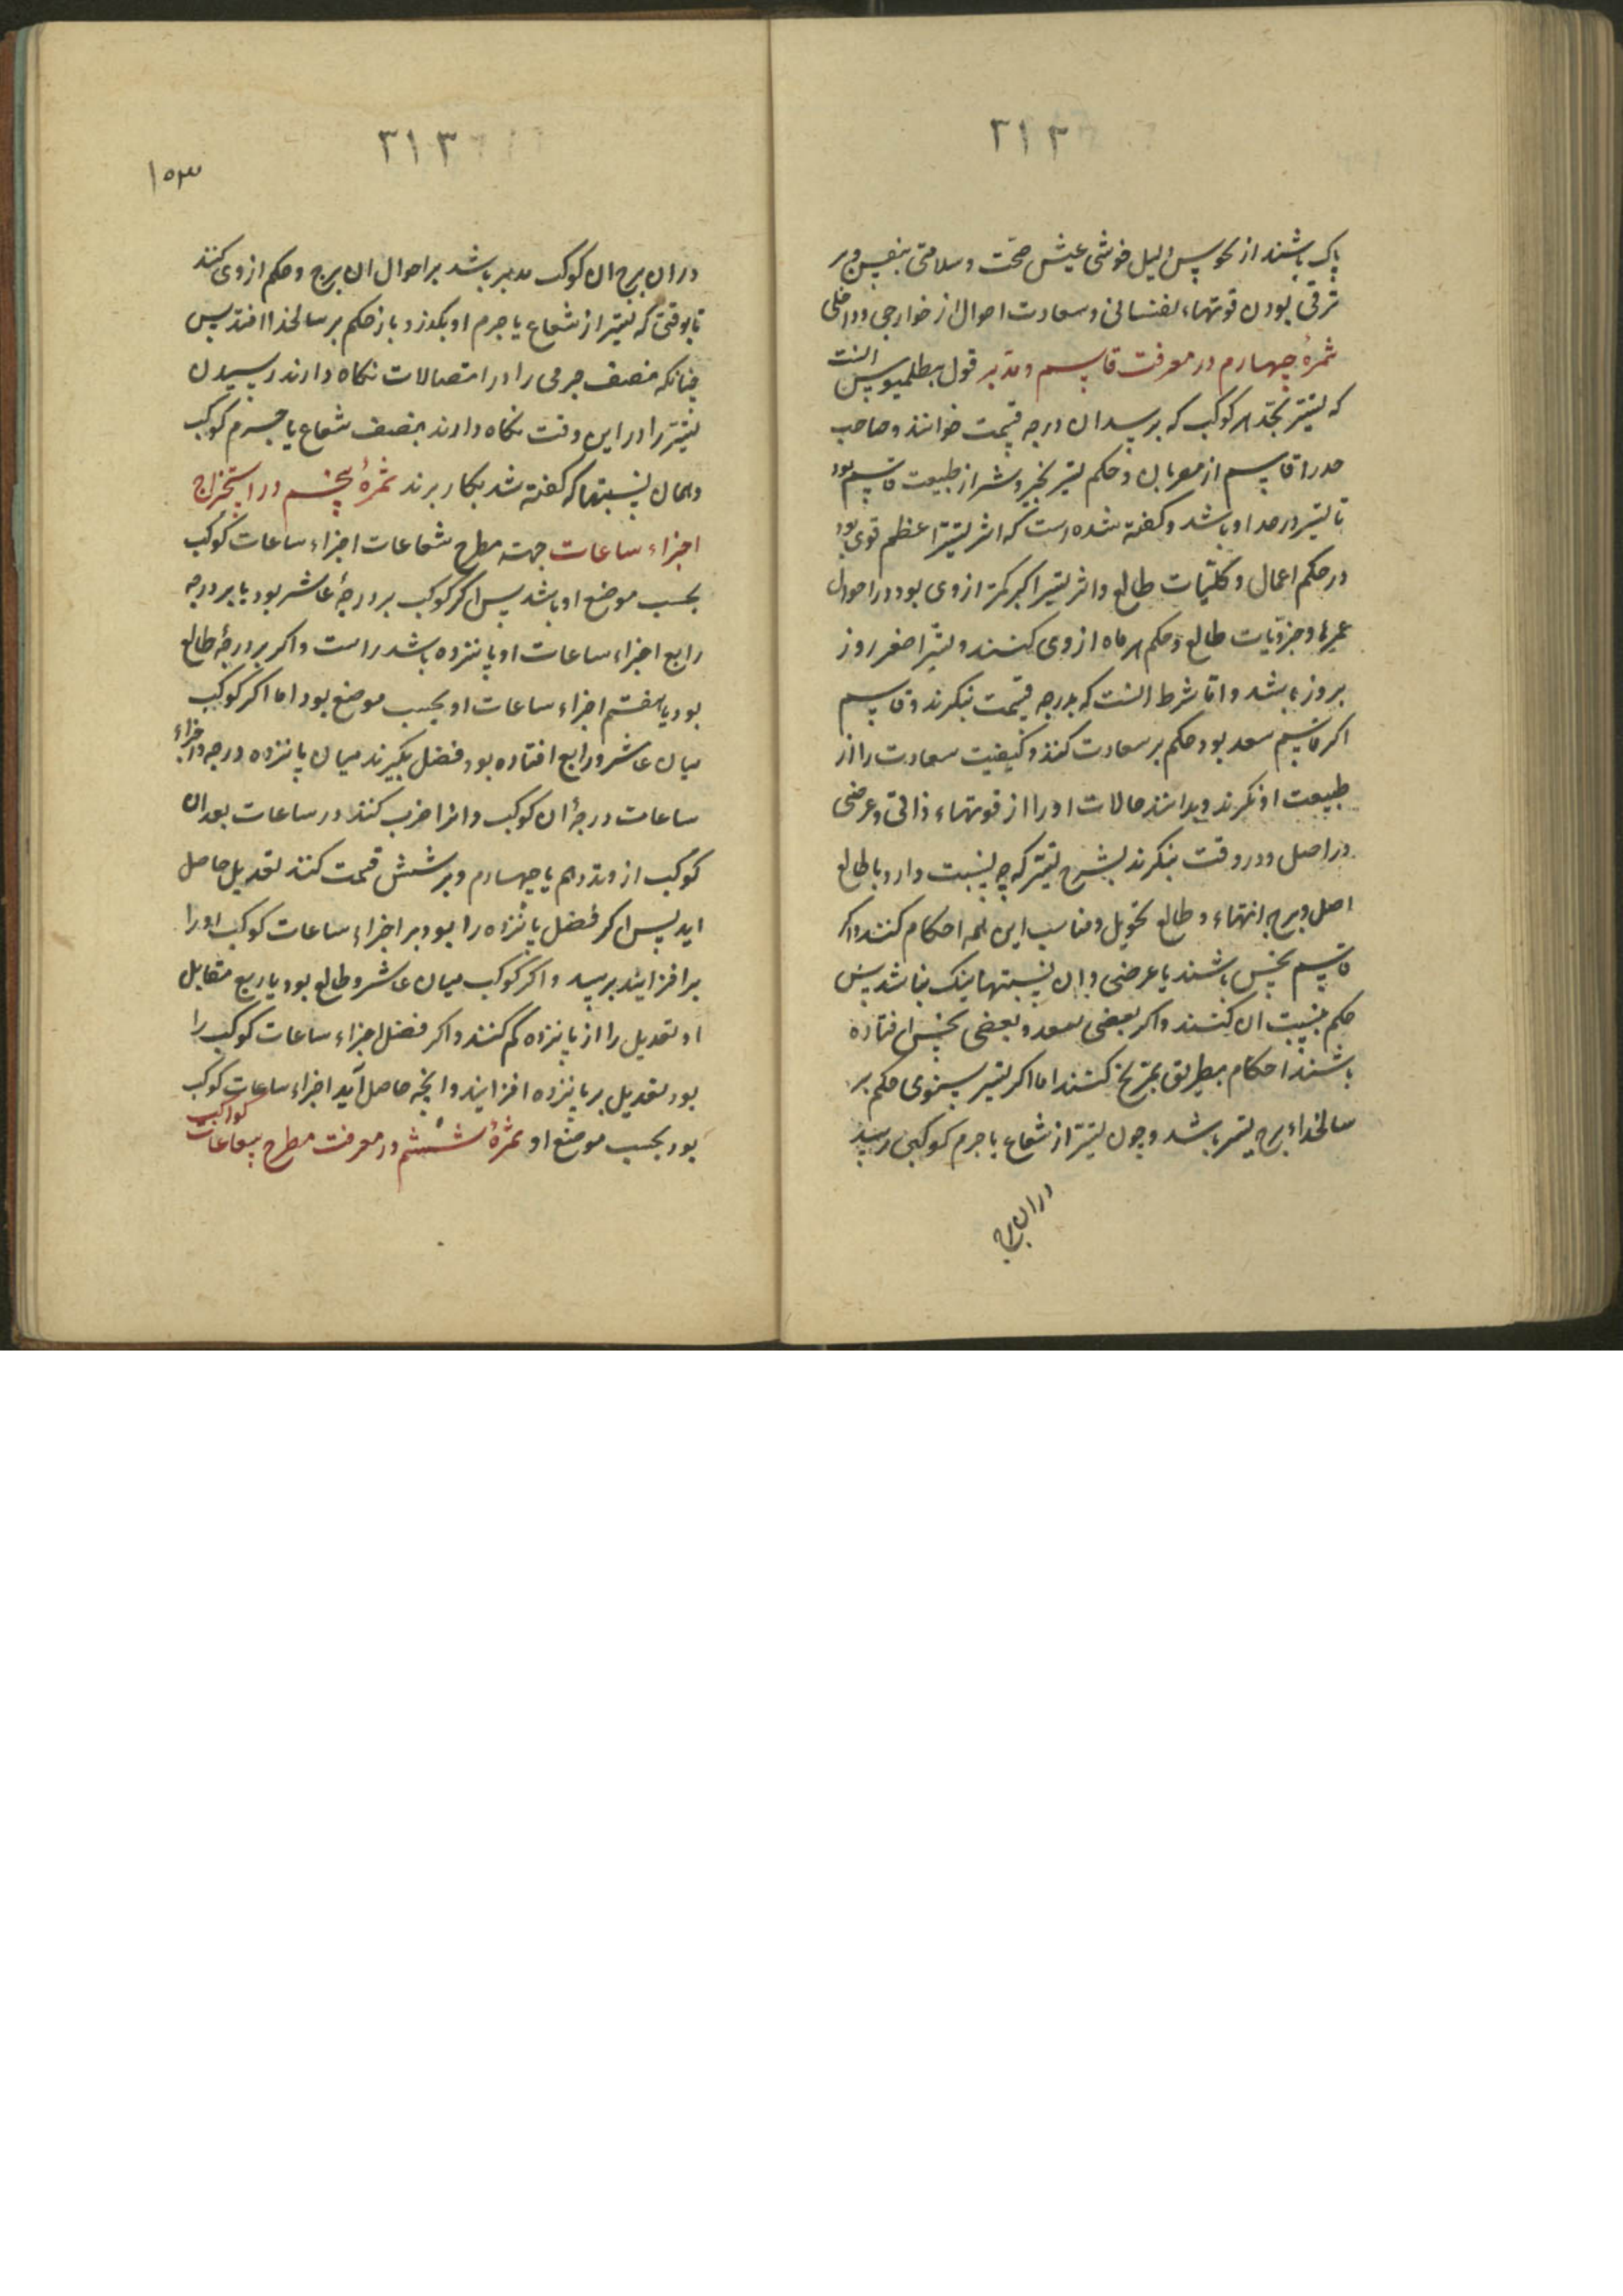 ۳۱۲
پاک باشند از نحوس دلیل خوشی عیش صحت و سلامتی بنفس و بر
ترقی بودن قوتهاء نفسانی و سعادت احوال از خوارجی و داخلی
ثمرهٔ چهارم در معرفت قاسم و مدبر قول بطلمیوس انست
که تسیر بحد هر کوکب که برسد ان درجه قسمت خوانند و صاحب
حد را قاسم از معربان و حکم تسیر بخیر و شر از طبیعت قاسم بود
تا تسیر در حد او باشد و کفته شده است که اثر تسیر اعظم قوی بود
در حکم اعمال و کلیات طالع و اثر تسیر اکبر کمتر از وی بود در احوال
عمرها و جزویات طالع و حکم هر ماه از وی کنند و تسیر اصغر روز
بروز باشد و اما شرط انست که بدرجه قسمت بنکرند و قاسم
اکر قاسم سعد بود حکم بر سعادت کنند و کیفیت سعادت را از
طبیعت او نکرند و بدانند حالات او را از قوتهاء ذاتی و عرضی
در اصل و در وقت بنکرند بشرح تسیر که چه نسبت دارد با طالع
اصل و برج انتهاء و طالع تحویل و مناسب این همه احکام کنند و اکر
قاسم نحس باشند یا عرضی و ان نسبتها نیک نباشد پس
حکم بنسبت ان کنند و اکر بعضی بسعد و بعضی بنحس افتاده
باشند احکام بطریق تمزیج کنند اما اکر تسیر سنوی حکم بر
سالخداء برج تسیر باشد و چون تسیر از شعاع یا جرم کوکبی رسد
در ان برج
۳۱۳
۱۵۳
در ان برج ان کوکب مدبر باشد بر احوال ان برج و حکم از وی کنند
تا بوقتی که تسیر از شعاع یا جرم او بکذرد باز حکم بر سالخدا افتد پس
چنانکه منصف جرمی را در اتصالات نکاه دارند رسیدن
تسیر را در این وقت نکاه دارند بنصف شعاع یا جرم کوکب
و همان نسبتها که کفته شد بکار برند ثمرهٔ پنجم در استخراج
اجزاء ساعات جهة مطرح شعاعات اجزاء ساعات کوکب
بحسب موضع او باشد پس اکر کوکب بر درجهٔ عاشر بود یا بر درجه
رابع اجزاء ساعات او پانزده باشد راست و اکر بر درجهٔ طالع
بود یا هفتم اجزاء ساعات او بحسب موضع بود اما اکر کوکب
میان عاشر و رابع افتاده بود فضل بکیرند میان پانزده درجه و اجزاء
ساعات درجهٔ ان کوکب و انرا ضرب کنند در ساعات بعد ان
کوکب از وتد دهم یا چهارم و بر شش قسمت کنند تعدیل حاصل
اید پس اکر فضل پانزده را بود بر اجزاء ساعات کوکب او را
بر افزایند برسد و اکر کوکب میان عاشر و طالع بود یا ربع مقابل
او تعدیل را از پانزده کم کنند و اکر فضل اجزاء ساعات کوکب را
بود تعدیل بر پانزده افزایند و انچه حاصل آید اجزاء ساعات کوکب
بود بحسب موضع او ثمرهٔ ششم در معرفت مطرح شعاعات کواکب